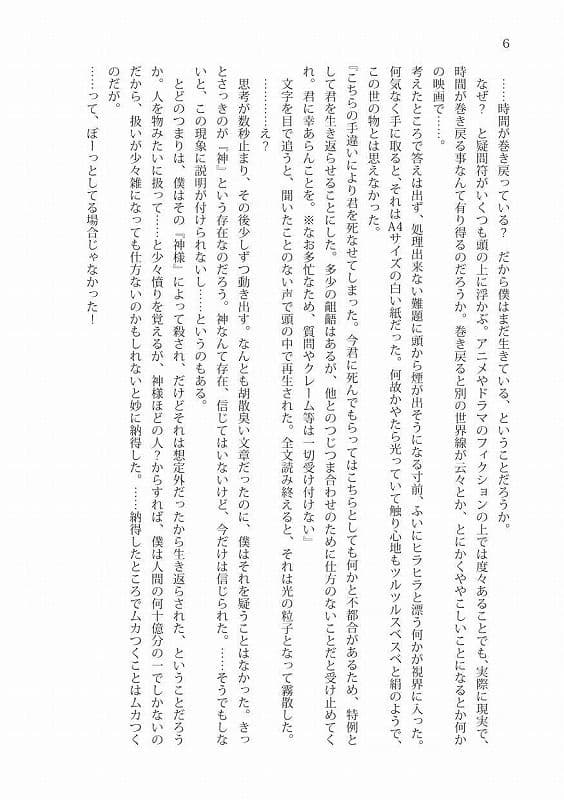 6
……時間が巻き戻っている？　だから僕はまだ生きている、ということだろうか。
なぜ？　と疑問符がいくつも頭の上に浮かぶ。アニメやドラマのフィクションの上では度々あることでも、実際に現実で、
時間が巻き戻る事なんて有り得るのだろうか。巻き戻ると別の世界線が云々とか、とにかくややこしいことになるとか何か
の映画で……。
考えたところで答えは出ず、処理出来ない難題に頭から煙が出そうになる寸前、ふいにヒラヒラと漂う何かが視界に入った。
何気なく手に取ると、それはA4サイズの白い紙だった。何故かやたら光っていて触り心地もツルツルスベスベと絹のようで、
この世の物とは思えなかった。
『こちらの手違いにより君を死なせてしまった。今君に死んでもらってはこちらとしても何かと不都合があるため、特例と
して君を生き返らせることにした。多少の齟齬はあるが、他とのつじつま合わせのために仕方のないことだと受け止めてく
れ。君に幸あらんことを。※なお多忙なため、質問やクレーム等は一切受け付けない』
文字を目で追うと、聞いたことのない声で頭の中で再生された。全文読み終えると、それは光の粒子となって霧散した。
……………え？
思考が数秒止まり、その後少しずつ動き出す。なんとも胡散臭い文章だったのに、僕はそれを疑うことはなかった。きっ
とさっきのが『神』という存在なのだろう。神なんて存在、信じてはいないけど、今だけは信じられた。……そうでもしな
いと、この現象に説明が付けられないし……というのもある。
とどのつまりは、僕はその『神様』によって殺され、だけどそれは想定外だったから生き返らされた、ということだろう
か。人を物みたいに扱って……と少々憤りを覚えるが、神様ほどの人？からすれば、僕は人間の何十億分の一でしかないの
だから、扱いが少々雑になっても仕方ないのかもしれないと妙に納得した。……納得したところでムカつくことはムカつく
のだが。
……って、ぼーっとしてる場合じゃなかった！